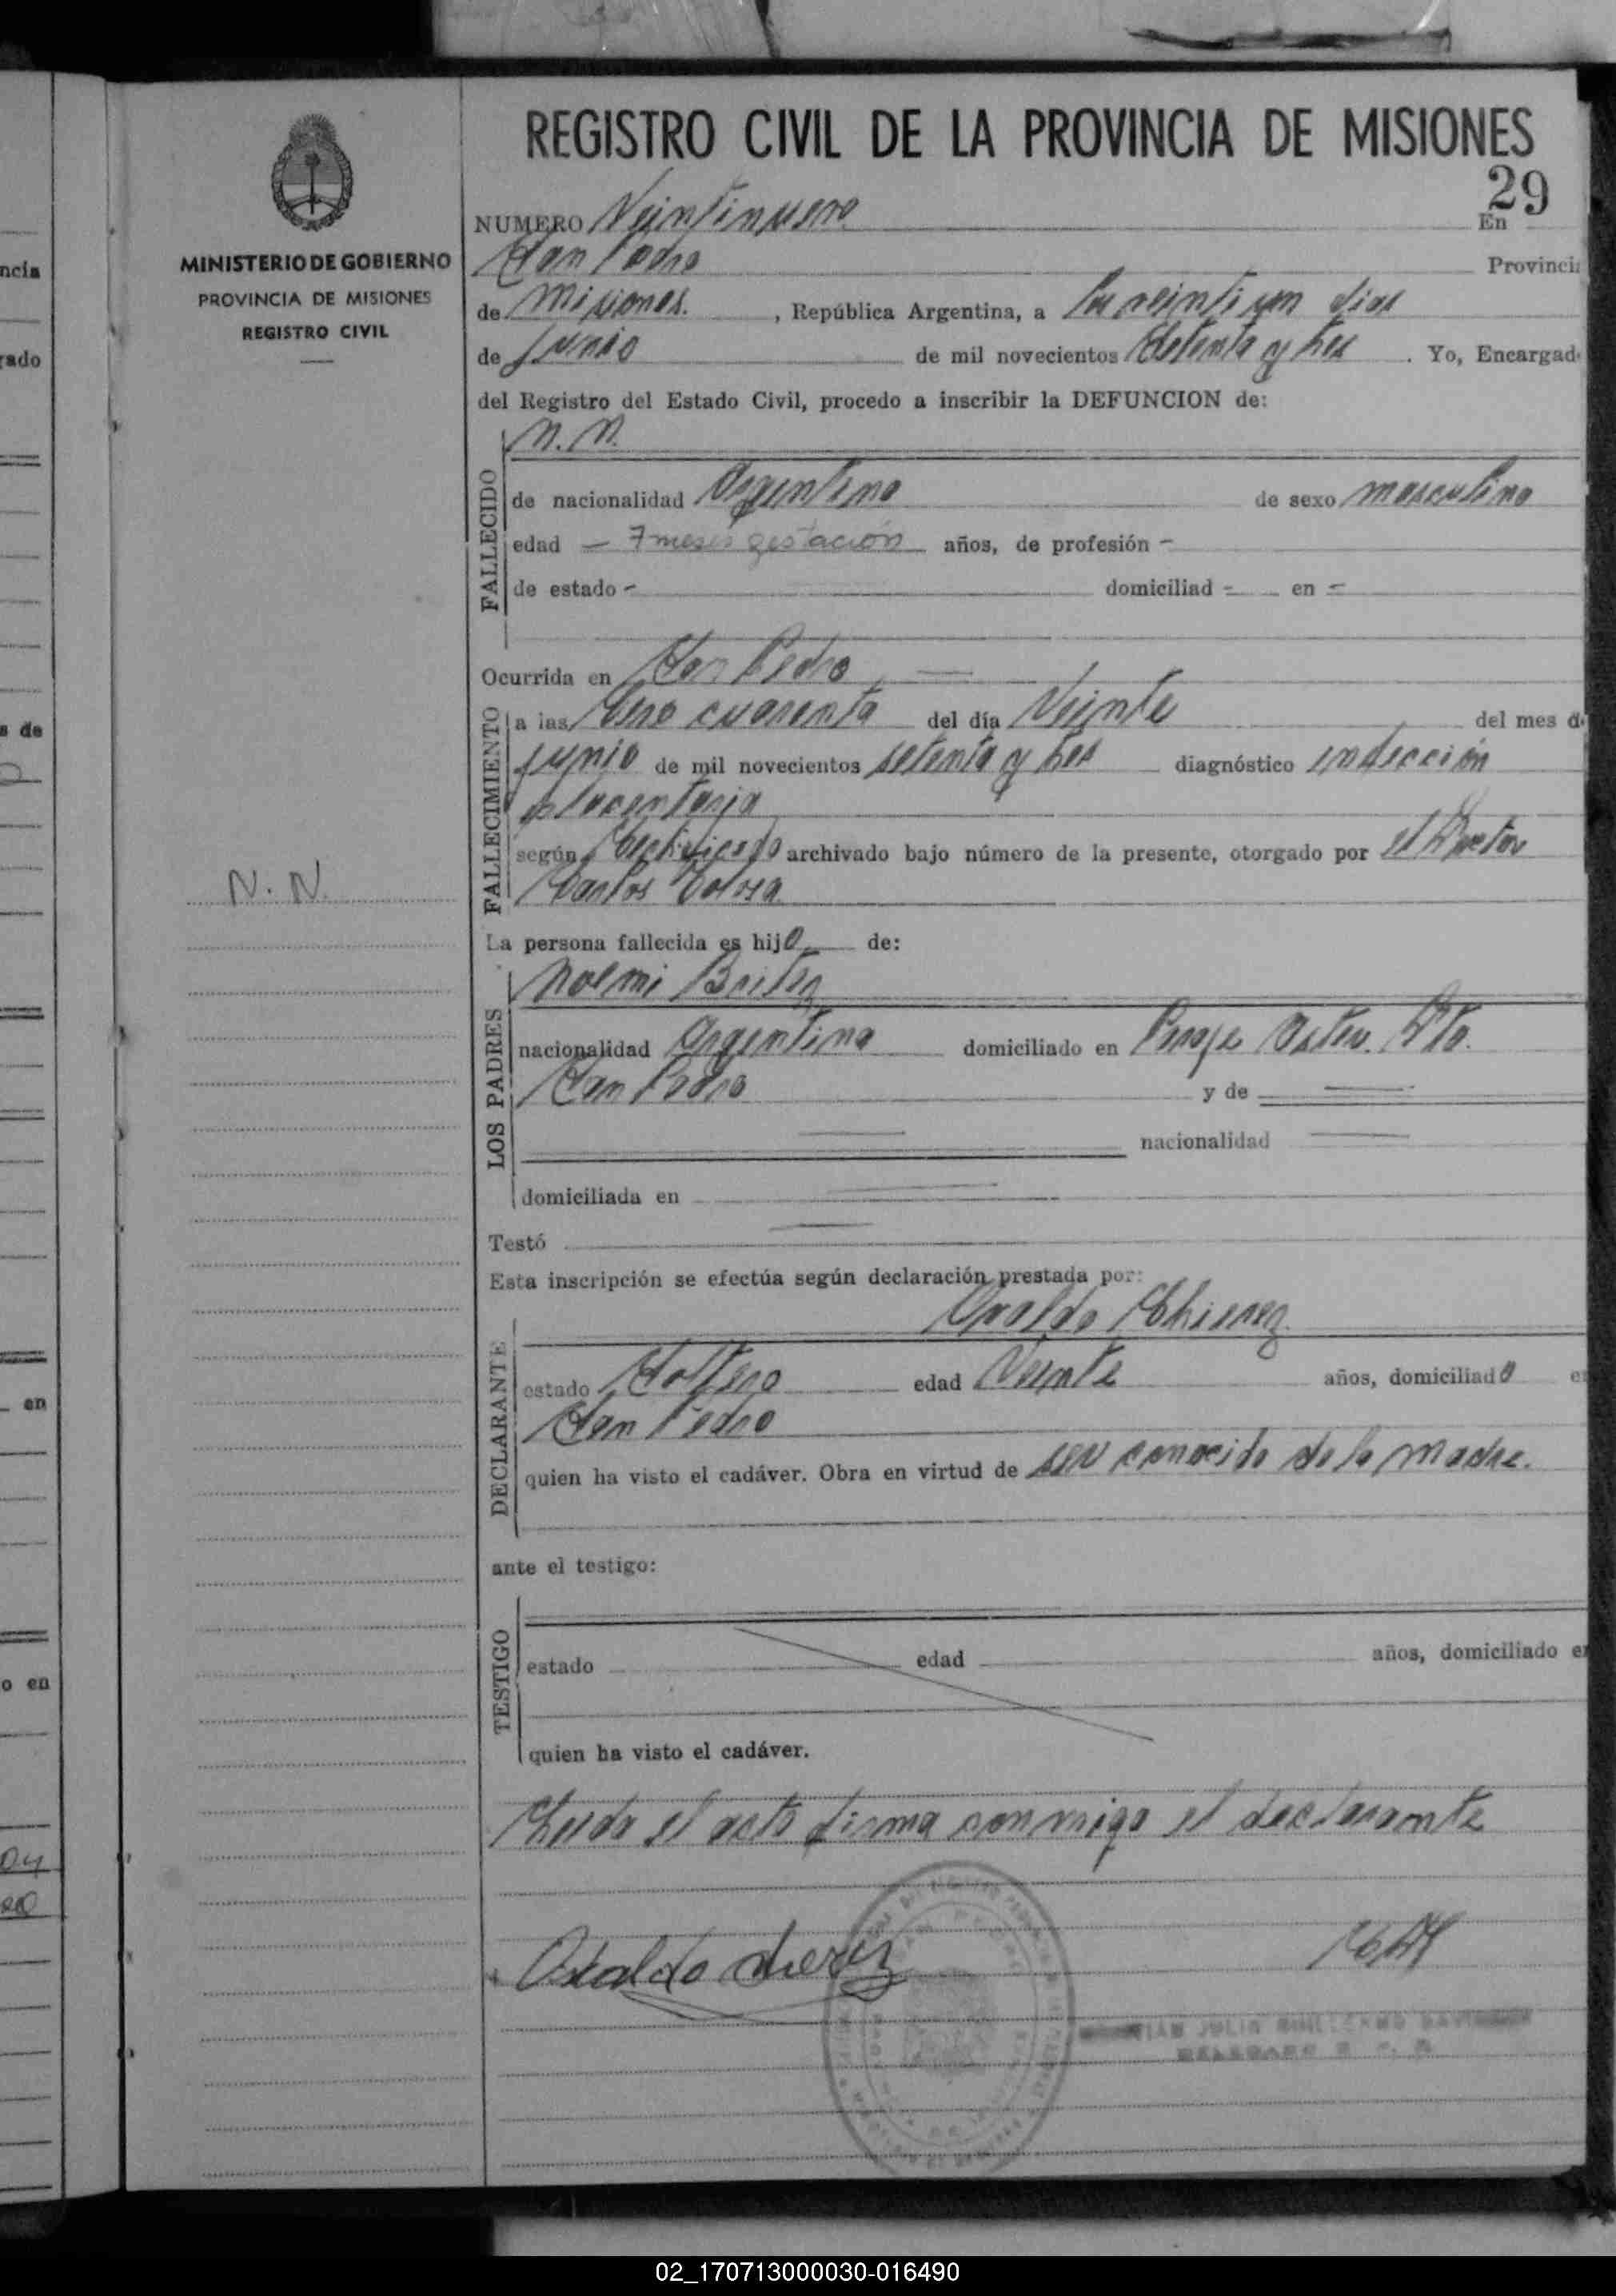 REGISTRO CIVIL DE LA PROVINCIA DE MISIONES
29
MINISTERIO DE GOBIERNO
PROVINCIA DE MISIONES
REGISTRO CIVIL
N. N.
NUMERO Veintinueve En
San Pedro Provinci
de Misiones. , República Argentina, a los veintiun dias
de Junio de mil novecientos setenta y tres . Yo, Encargad
del Registro del Estado Civil, procedo a inscribir la DEFUNCION de:
N. N.
FALLECIDO
de nacionalidad Argentino de sexo masculino
edad — 7 meses gestación años, de profesión -
de estado - domiciliad - en -
Ocurrida en San Pedro
FALLECIMIENTO
a las cero cuarenta del día Veinte del mes d
Junio de mil novecientos setenta y tres diagnóstico infección
placentaria
según Certificado archivado bajo número de la presente, otorgado por el Doctor
Carlos
La persona fallecida es hijo de:
LOS PADRES
Noemi Britez
nacionalidad Argentina domiciliado en Paraje Dto.
San Pedro y de
nacionalidad
domiciliada en
Testó
Esta inscripción se efectúa según declaración prestada por:
DECLARANTE
estado Soltero edad Veinte años, domiciliado e
San Pedro
quien ha visto el cadáver. Obra en virtud de ser conocido de la madre.
ante el testigo:
TESTIGO
estado edad años, domiciliado e
quien ha visto el cadáver.
Leida el acta firma conmigo el declarante
JULIO GUILLERMO
02_170713000030-016490
ncia
rado
s de
en
o en